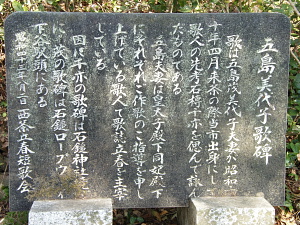 五島美代子歌碑
歌は五島茂美代子夫妻が昭和
十年四月来茶の際当市出身にして
歌人の先考石榑千亦を偲んで詠ん
だものである
五島夫妻は皇太子殿下同妃殿下
にそれぞれ作歌のご指導を申し
上げている歌人で歌誌立春を主宰
している
因に千亦の歌碑は石鎚神社に
に茂の歌碑は石鎚ロープウェイ
下谷父頭にある
昭和四十三年八月一日 西条立春短歌会